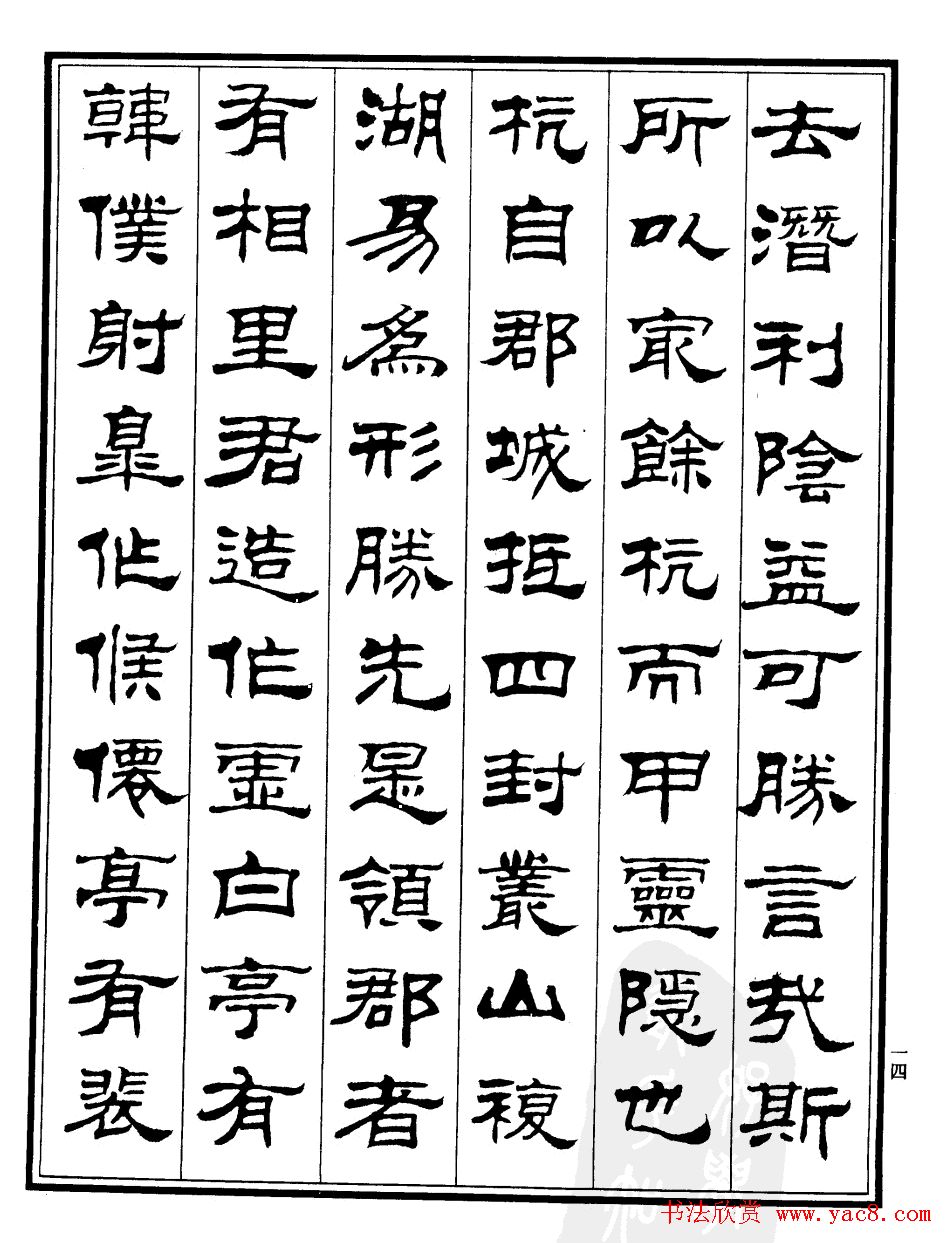 去潛利陰益可勝言哉斯
所以冣餘杭而甲靈隱也
杭自郡城抵四封叢山複
湖易為形勝先是領郡者
有相里君造作虛白亭有
韓僕射皋作候僊亭有裴
一四
书法欣赏 www.yac8.com